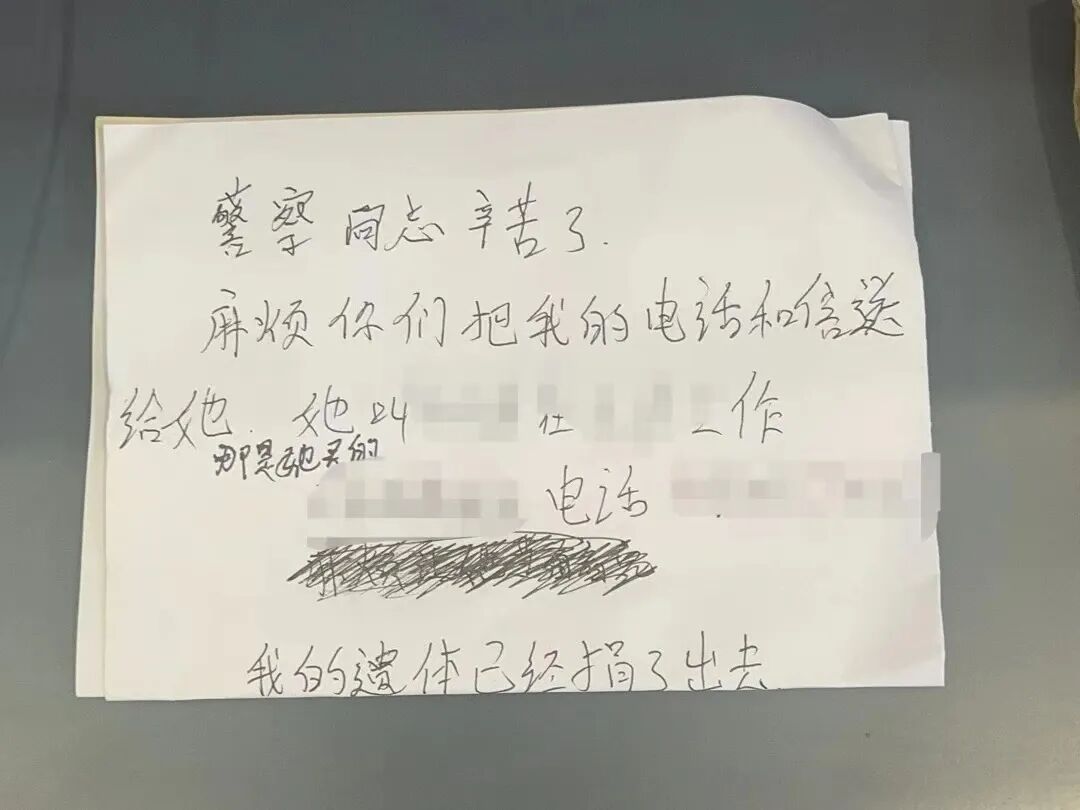 警察同志辛苦了.
麻烦你们把我的电话和信送
给她. 她叫 在 工作
那是她买的
电话
我的遗体已经捐了出去